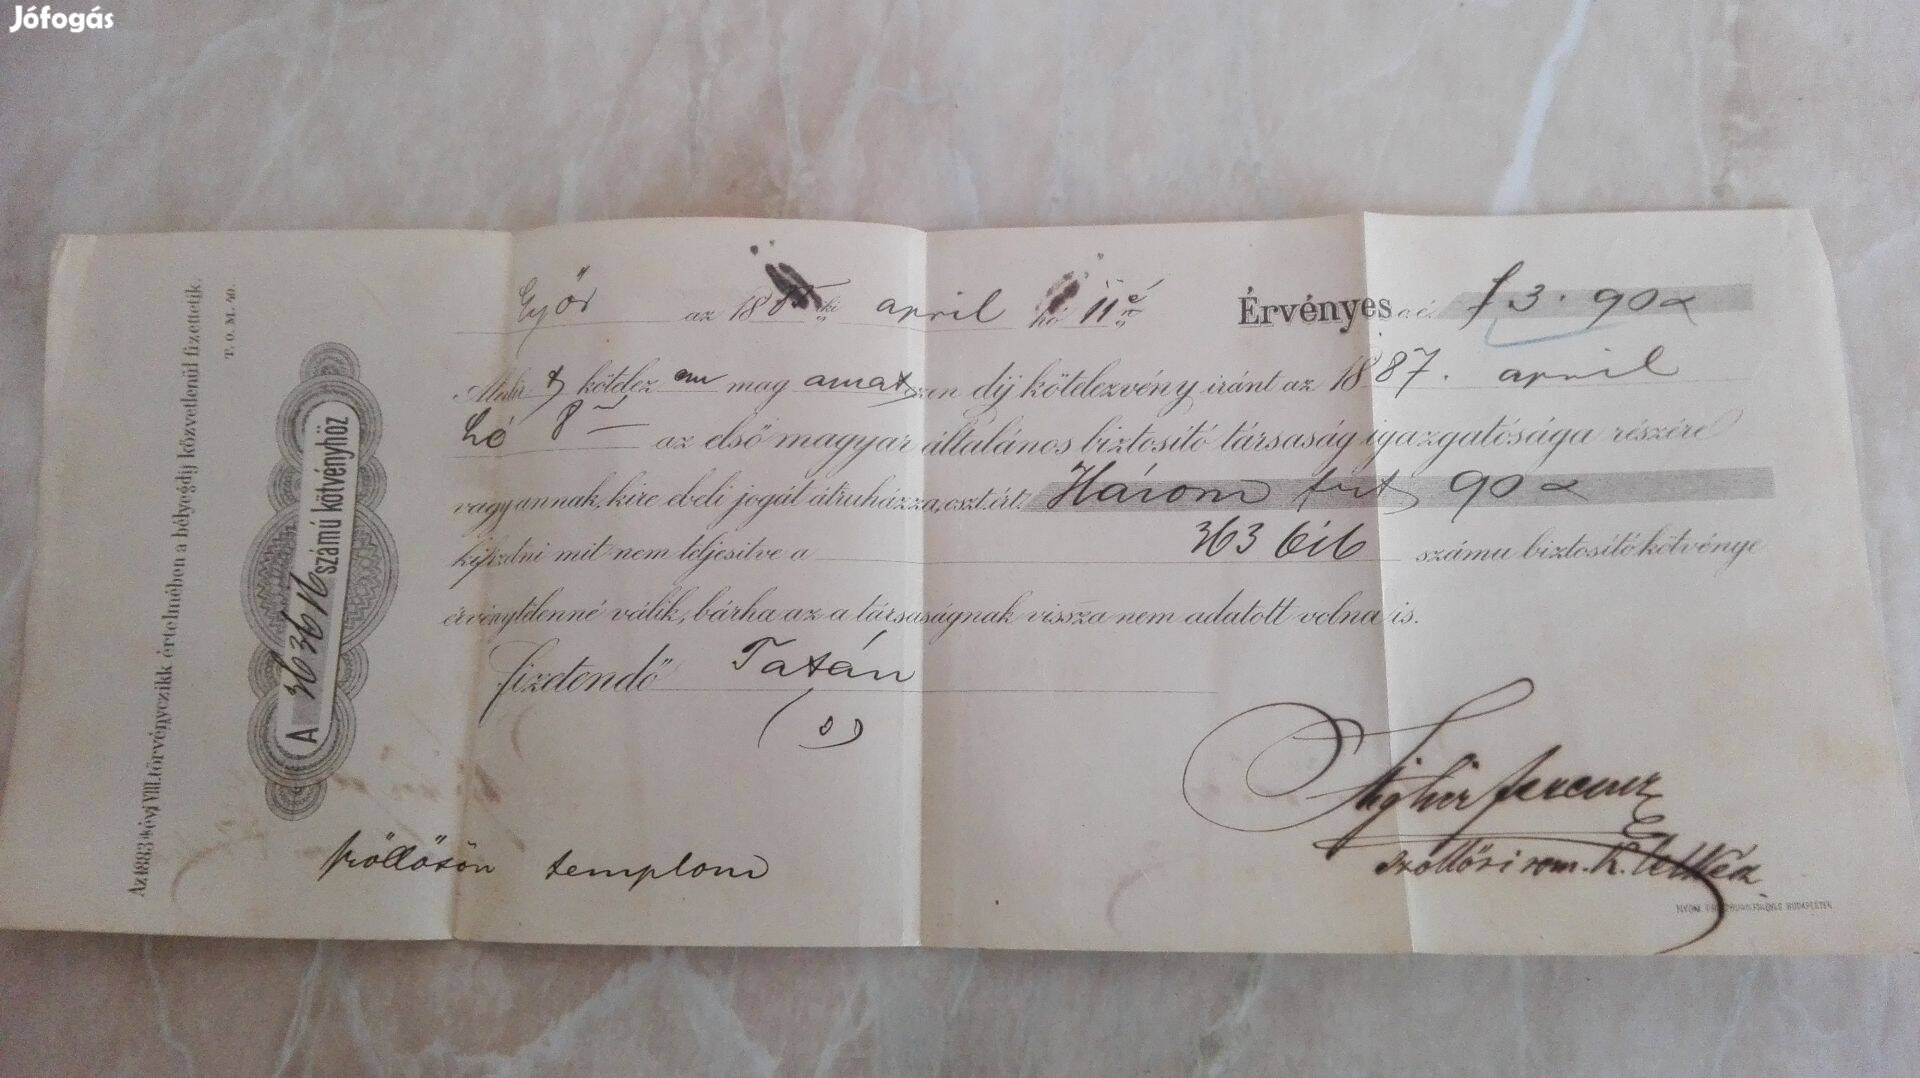 Jófogás
Az 1883. évi VIII. törvényczikk értelmében a bélyegdíj közvetlenül fizettetik.
T. O. M. 40.
A 363616 számú kötvényhöz
Győr az 18 ki april hó 11én Érvényes o. é. f 3. 90 x
kötelez em mag amaz en díj kötelezvény iránt az 1887. april
hó 8án az első magyar általános biztosító társaság igazgatósága részére
vagy annak, kire ebeli jogát átruházza, oszt. ért. Három frt 90 x
kifizetni mit nem teljesitve a 363 616 számu biztositó kötvénye
érvénytelenné válik, bárha az a társaságnak vissza nem adatott volna is.
fizetendő Tatán
Ferencz
Szőllősi rom. k.
Szőllősön templom